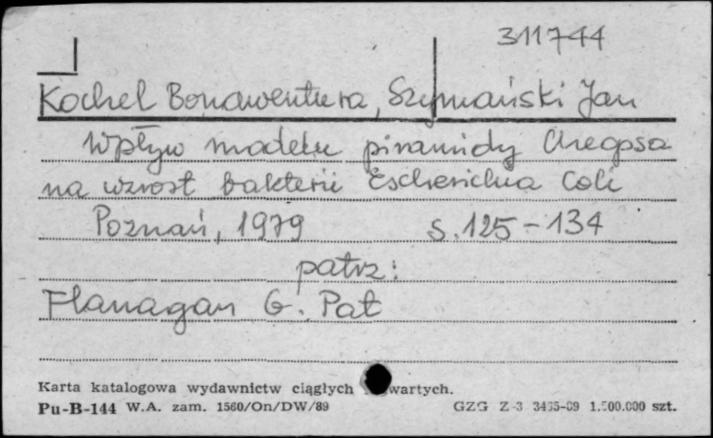 311744
Kochel Bonawentura, Szymański Jan
Wpływ modelu piramidy Cheopsa
na wzrost bakterii Escherichia Coli
Poznań, 1979 s. 125-134
patrz:
Flanagan G. Pat
Karta katalogowa wydawnictw ciągłych wartych.
Pu-B-144 W.A. zam. 1560/On/DW/89 GZG Z-3 3455-89 1.500.000 szt.